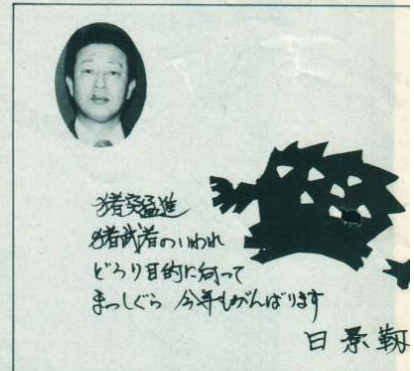 猪突猛進
猪武者のいわれ
どうり目的に向って
まっしぐら 今年もがんばります
日景